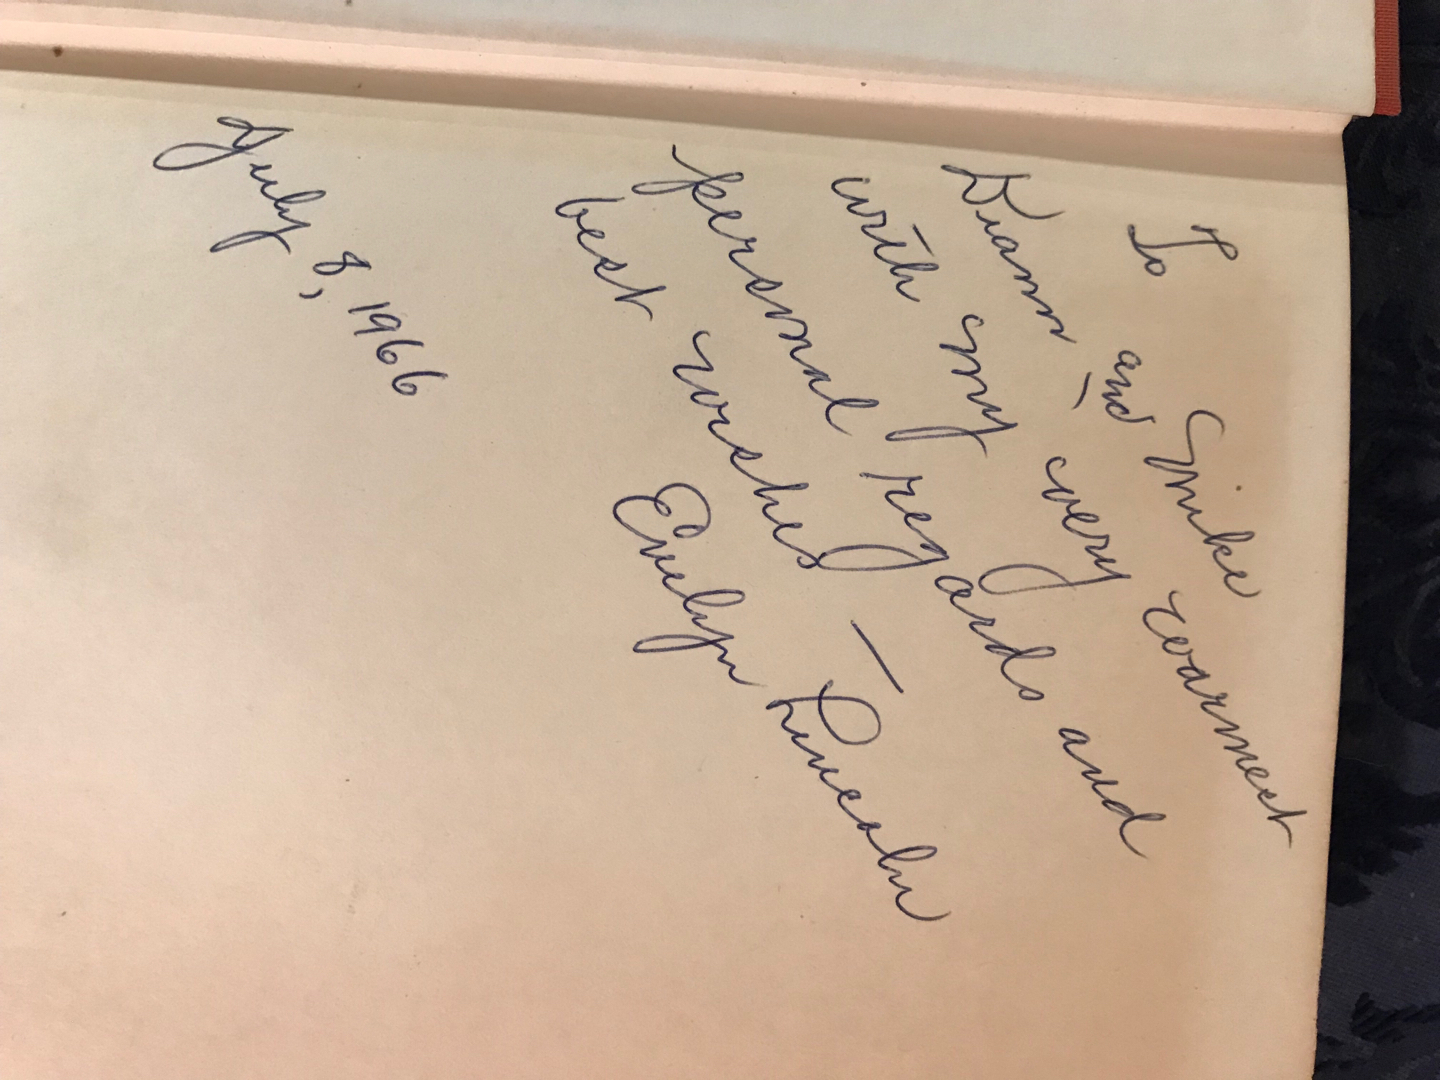 To
Diann and Mike —
with my very warmest
personal regards and
best wishes —
Evelyn Lincoln
July 8, 1966